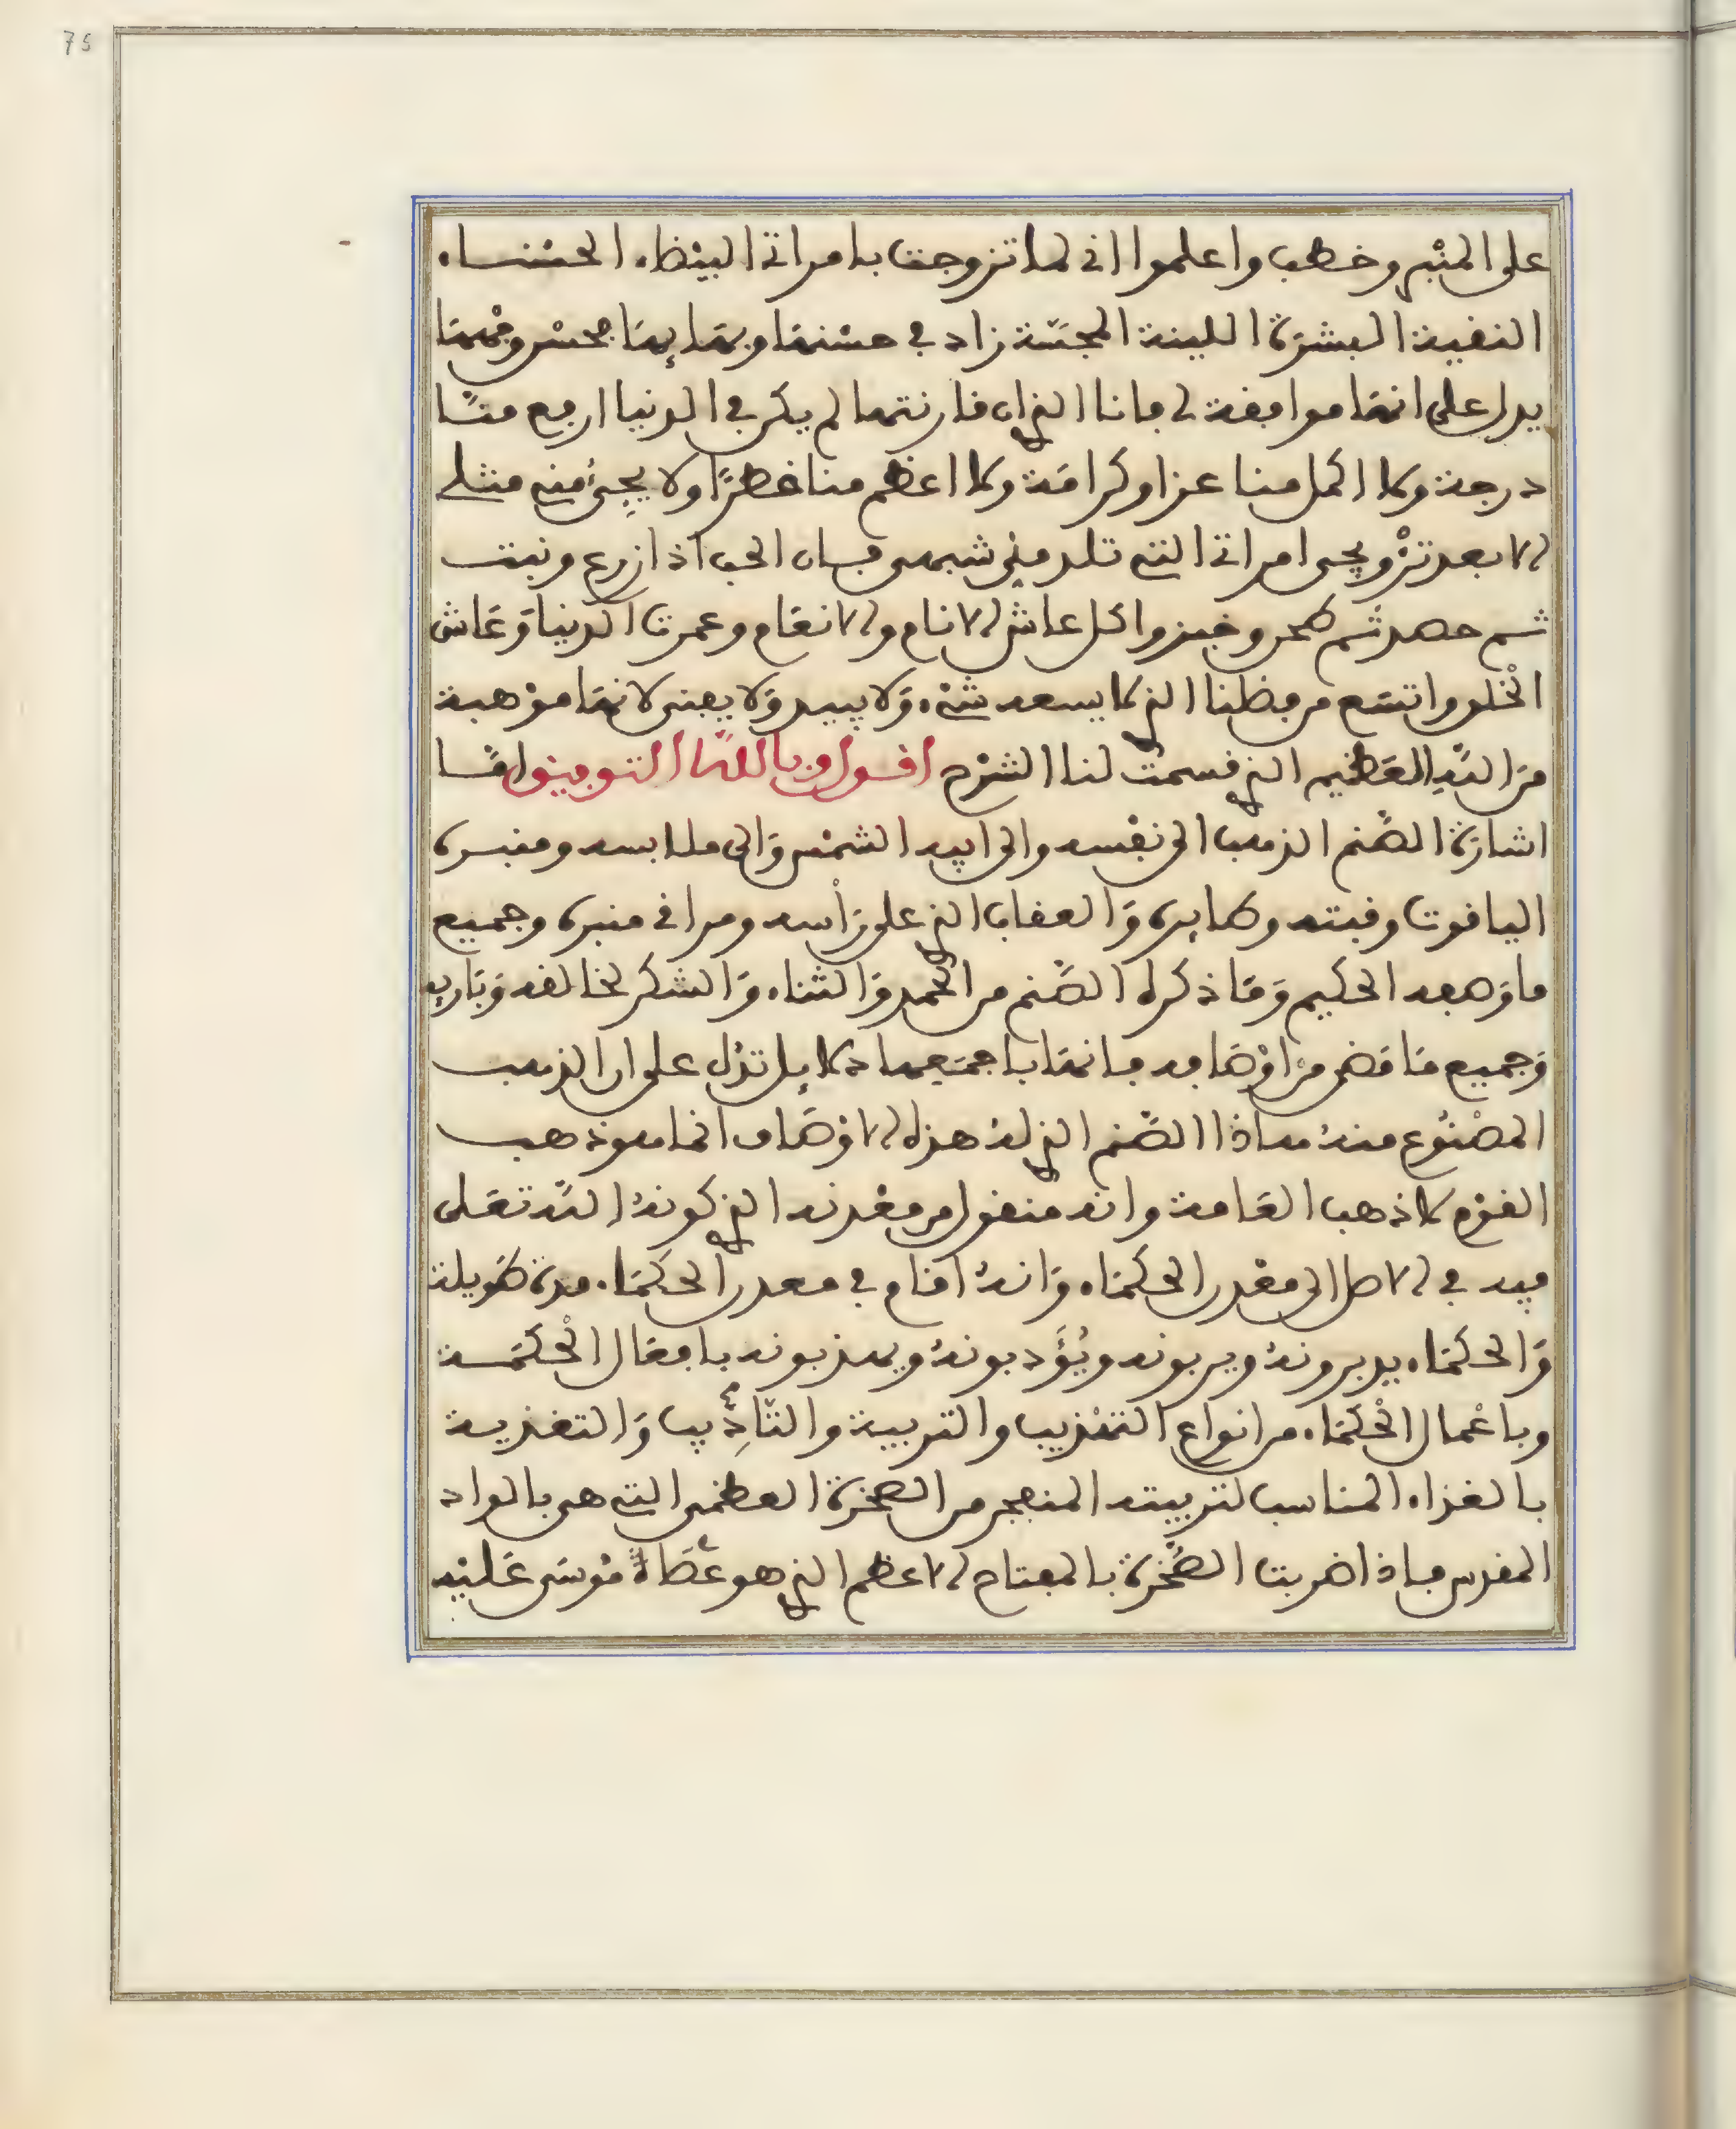 75
على المنبر وخطب واعلموا اني لما تزوجت بامراتي البيضاء الحسناء
النقية البشرة اللينة المجسة زاد في حسنها وبهايها بحسن وفهمها
يدل على انها موافقة لي فانا الذي ان قارنتها لم يكن في الدنيا ارفع منا
درجة ولا اكمل منا عزا وكرامة ولا اعظم منا خطرا ولا يجيء مني مثلي
الا بعد تزويجي امراتي التي تلد مني شبهي فان الحب اذا زرع ونبت
ثم حصد ثم طحن وخبز واكل عاش الانام والانعام وعمرت الدنيا وعاش
الخلد واتسع من فضلنا الذي لا يسعه شيء ولا يبيد ولا يفنى لانها موهبة
من الله العظيم الذي قسمت لنا الشرح اقول وبالله التوفيق اما
اشارة الصنم الذهب الى نفسه والى ابيه الشمس والى ملابسه ومنبره
الياقوت وقبته وطايره والعقاب الذي على رأسه ومراقي منبره وجميع
ما وصفه الحكيم وما ذكره الصنم من الحمد والثناء والشكر لخالقه وباريه
وجميع ما قضى من اوصافه فانها باجمعها دلايل تدل على ان الذهب
المصنوع منه هاذا الصنم الذي له هذه الاوصاف انما هو ذهب
القوم لا ذهب العامة وانه منقول من معدنه الذي كونه الله تعلى
فيه في الاصل الى معدن الحكماء وانه اقام في معدن الحكماء مدة طويلة
والحكماء يدبرونه ويربونه ويؤدبونه ويهذبونه بافعال الحكمة
وباعمال الحكماء من انواع التهذيب والتربية والتاديب والتغذية
بالغذاء المناسب لتربيته المنفجر من الصخرة العظمى التي هي بالواد
المقدس فاذا ضربت الصخرة بالمفتاح الاعظم الذي هو عصاة موسى عليه